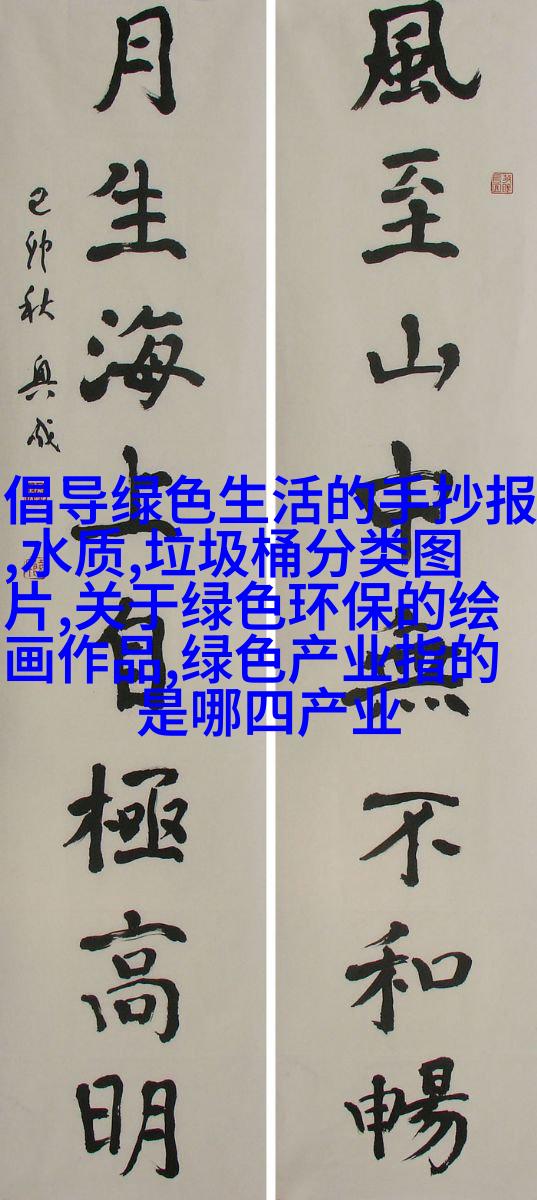 風至山中無不和暢
月生海上自極高明
己卯秋 興成
倡导绿色生活的手抄报
,水质,垃圾桶分类图
片,关于绿色环保的绘
画作品,绿色产业指的
是哪四产业